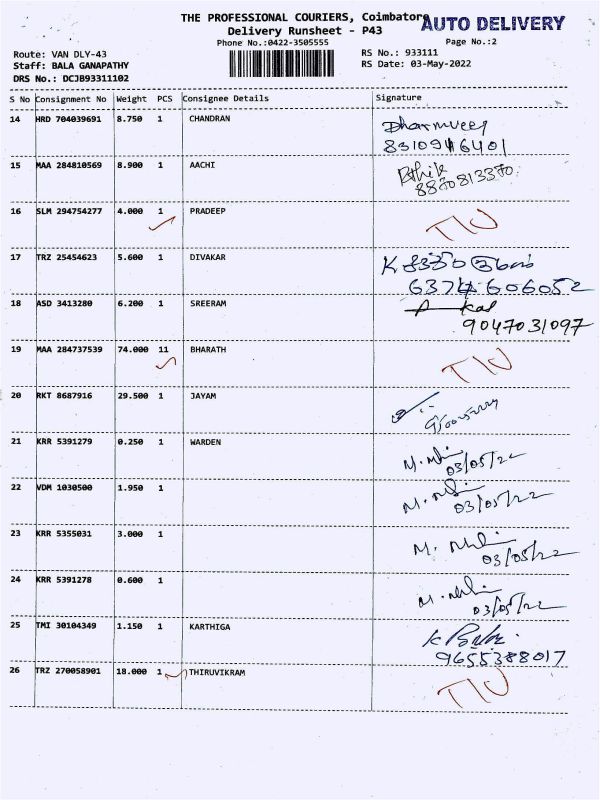 THE PROFESSIONAL COURIERS, Coimbatore
AUTO DELIVERY
Delivery Runsheet - P43
Phone No.:0422-3505555
Page No.:2
Route: VAN DLY-43
RS No.: 933111
Staff: BALA GANAPATHY
RS Date: 03-May-2022
DRS No.: DCJB93311102
S No Consignment No Weight PCS Consignee Details Signature
14 HRD 704039691 8.750 1 CHANDRAN Dharmveer
8310946401
15 MAA 284810569 8.900 1 AACHI
8870813370
16 SLM 294754277 4.000 1 PRADEEP
17 TRZ 25454623 5.600 1 DIVAKAR
6374606052
18 ASD 3413280 6.200 1 SREERAM
9047031097
19 MAA 284737539 74.000 11 BHARATH
20 RKT 8687916 29.500 1 JAYAM
21 KRR 5391279 0.250 1 WARDEN
03/05/22
22 VDM 1030500 1.950 1
03/05/22
23 KRR 5355031 3.000 1
03/05/22
24 KRR 5391278 0.600 1
03/05/22
25 TMI 30104349 1.150 1 KARTHIGA
9655388017
26 TRZ 270058901 18.000 1 THIRUVIKRAM